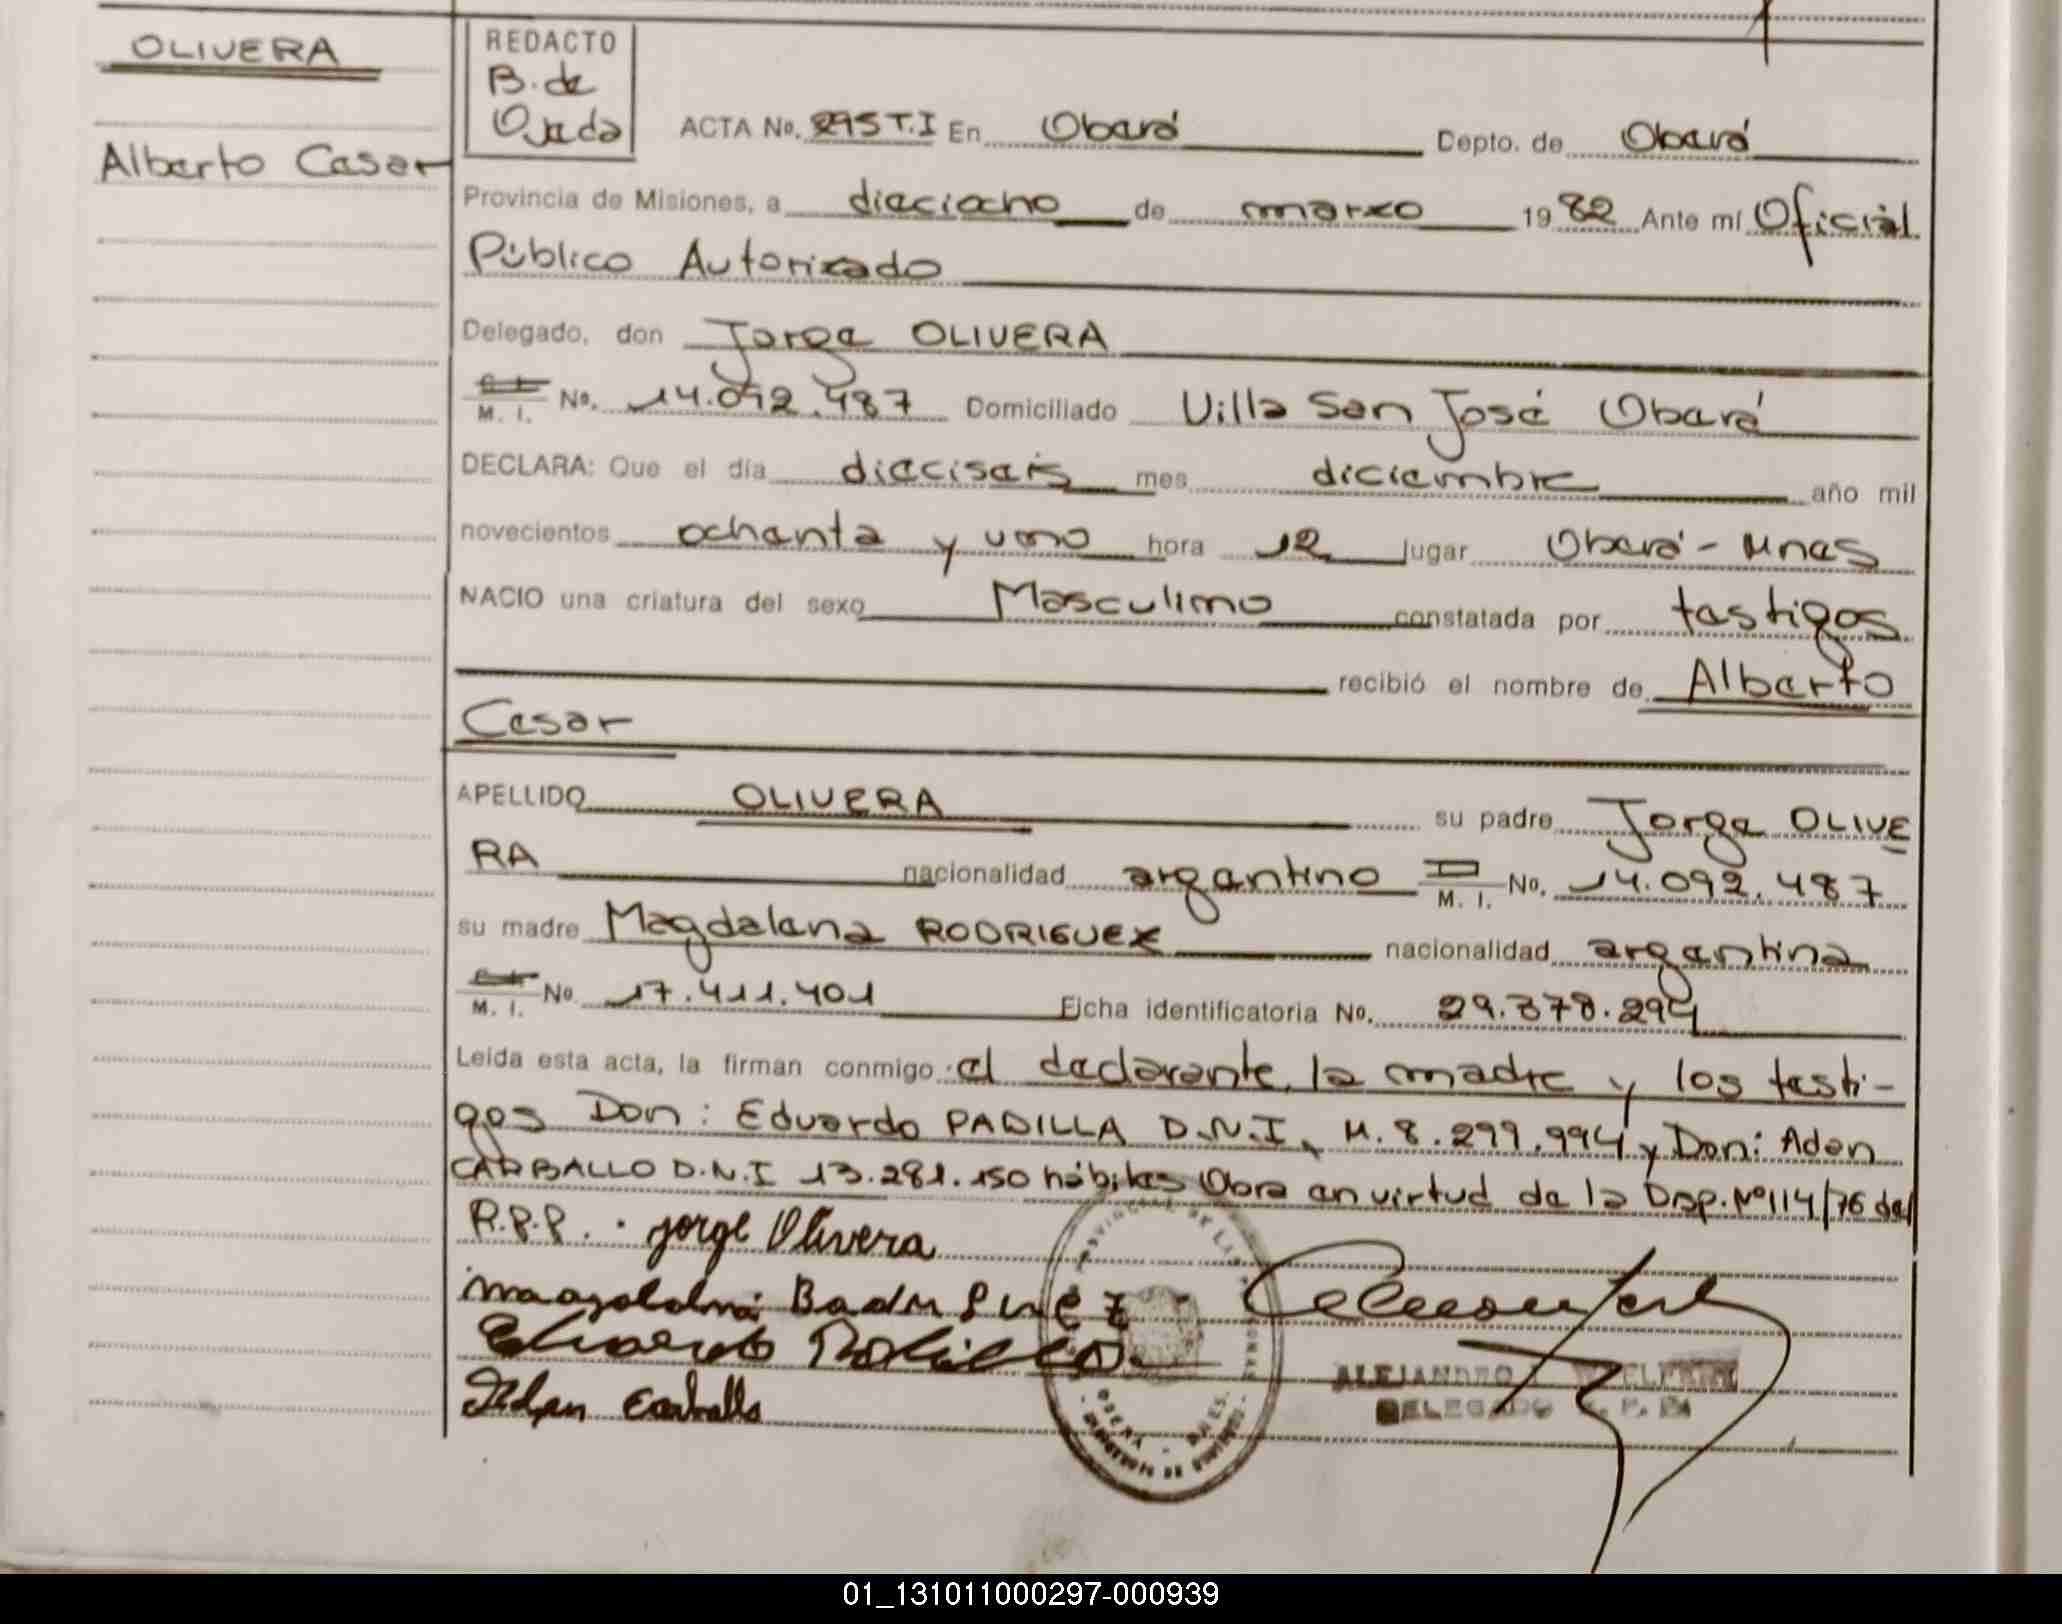 OLIVERA
Alberto Cesar
REDACTO
B. de
Ojeda
ACTA No. 295 T.I En Oberá Depto. de Oberá
Provincia de Misiones, a dieciocho de marzo 1982 Ante mí Oficial
Público Autorizado
Delegado, don Jorge OLIVERA
M. I. No. 14.092.487 Domiciliado Villa San José Oberá
DECLARA: Que el día dieciseis mes diciembre año mil
novecientos ochenta y uno hora 12 lugar Oberá - Mnes
NACIO una criatura del sexo Masculino constatada por testigos
recibió el nombre de Alberto
Cesar
APELLIDO OLIVERA su padre Jorge OLIVE
RA nacionalidad argentino M. I. No. 14.092.487
su madre Magdalena RODRIGUEZ nacionalidad argentina
M. I. No 17.411.401 Ficha identificatoria No. 29.378.294
Leída esta acta, la firman conmigo el declarante, la madre y los testi-
gos Don: Eduardo PADILLA D.N.I. M. 8.299.994 y Don: Adan
CARBALLO D.N.I 13.281.150 hábiles Obra en virtud de la Disp. Nº 114/76 del
R.P.P. . jorge Olivera
Eduardo Padilla
Adan Carballo
ALEJANDRO
DELEGADO
OBERA - MNES.
01_131011000297-000939